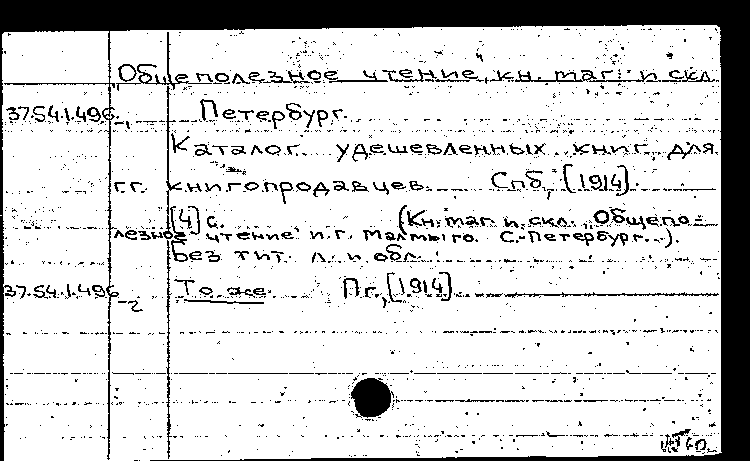 „Общеполезное чтение", кн. маг. и скл.
37.54.1.496-1 Петербург.
Каталог удешевленных книг для
г.г. книгопродавцев. Спб, [1914].
[4] с. (Кн. маг. и скл. „Общепо=
лезное чтение" С.-Петербург...).
Без тит. л. и обл.
37.54.1.496-2 То же. Пг., [1914].